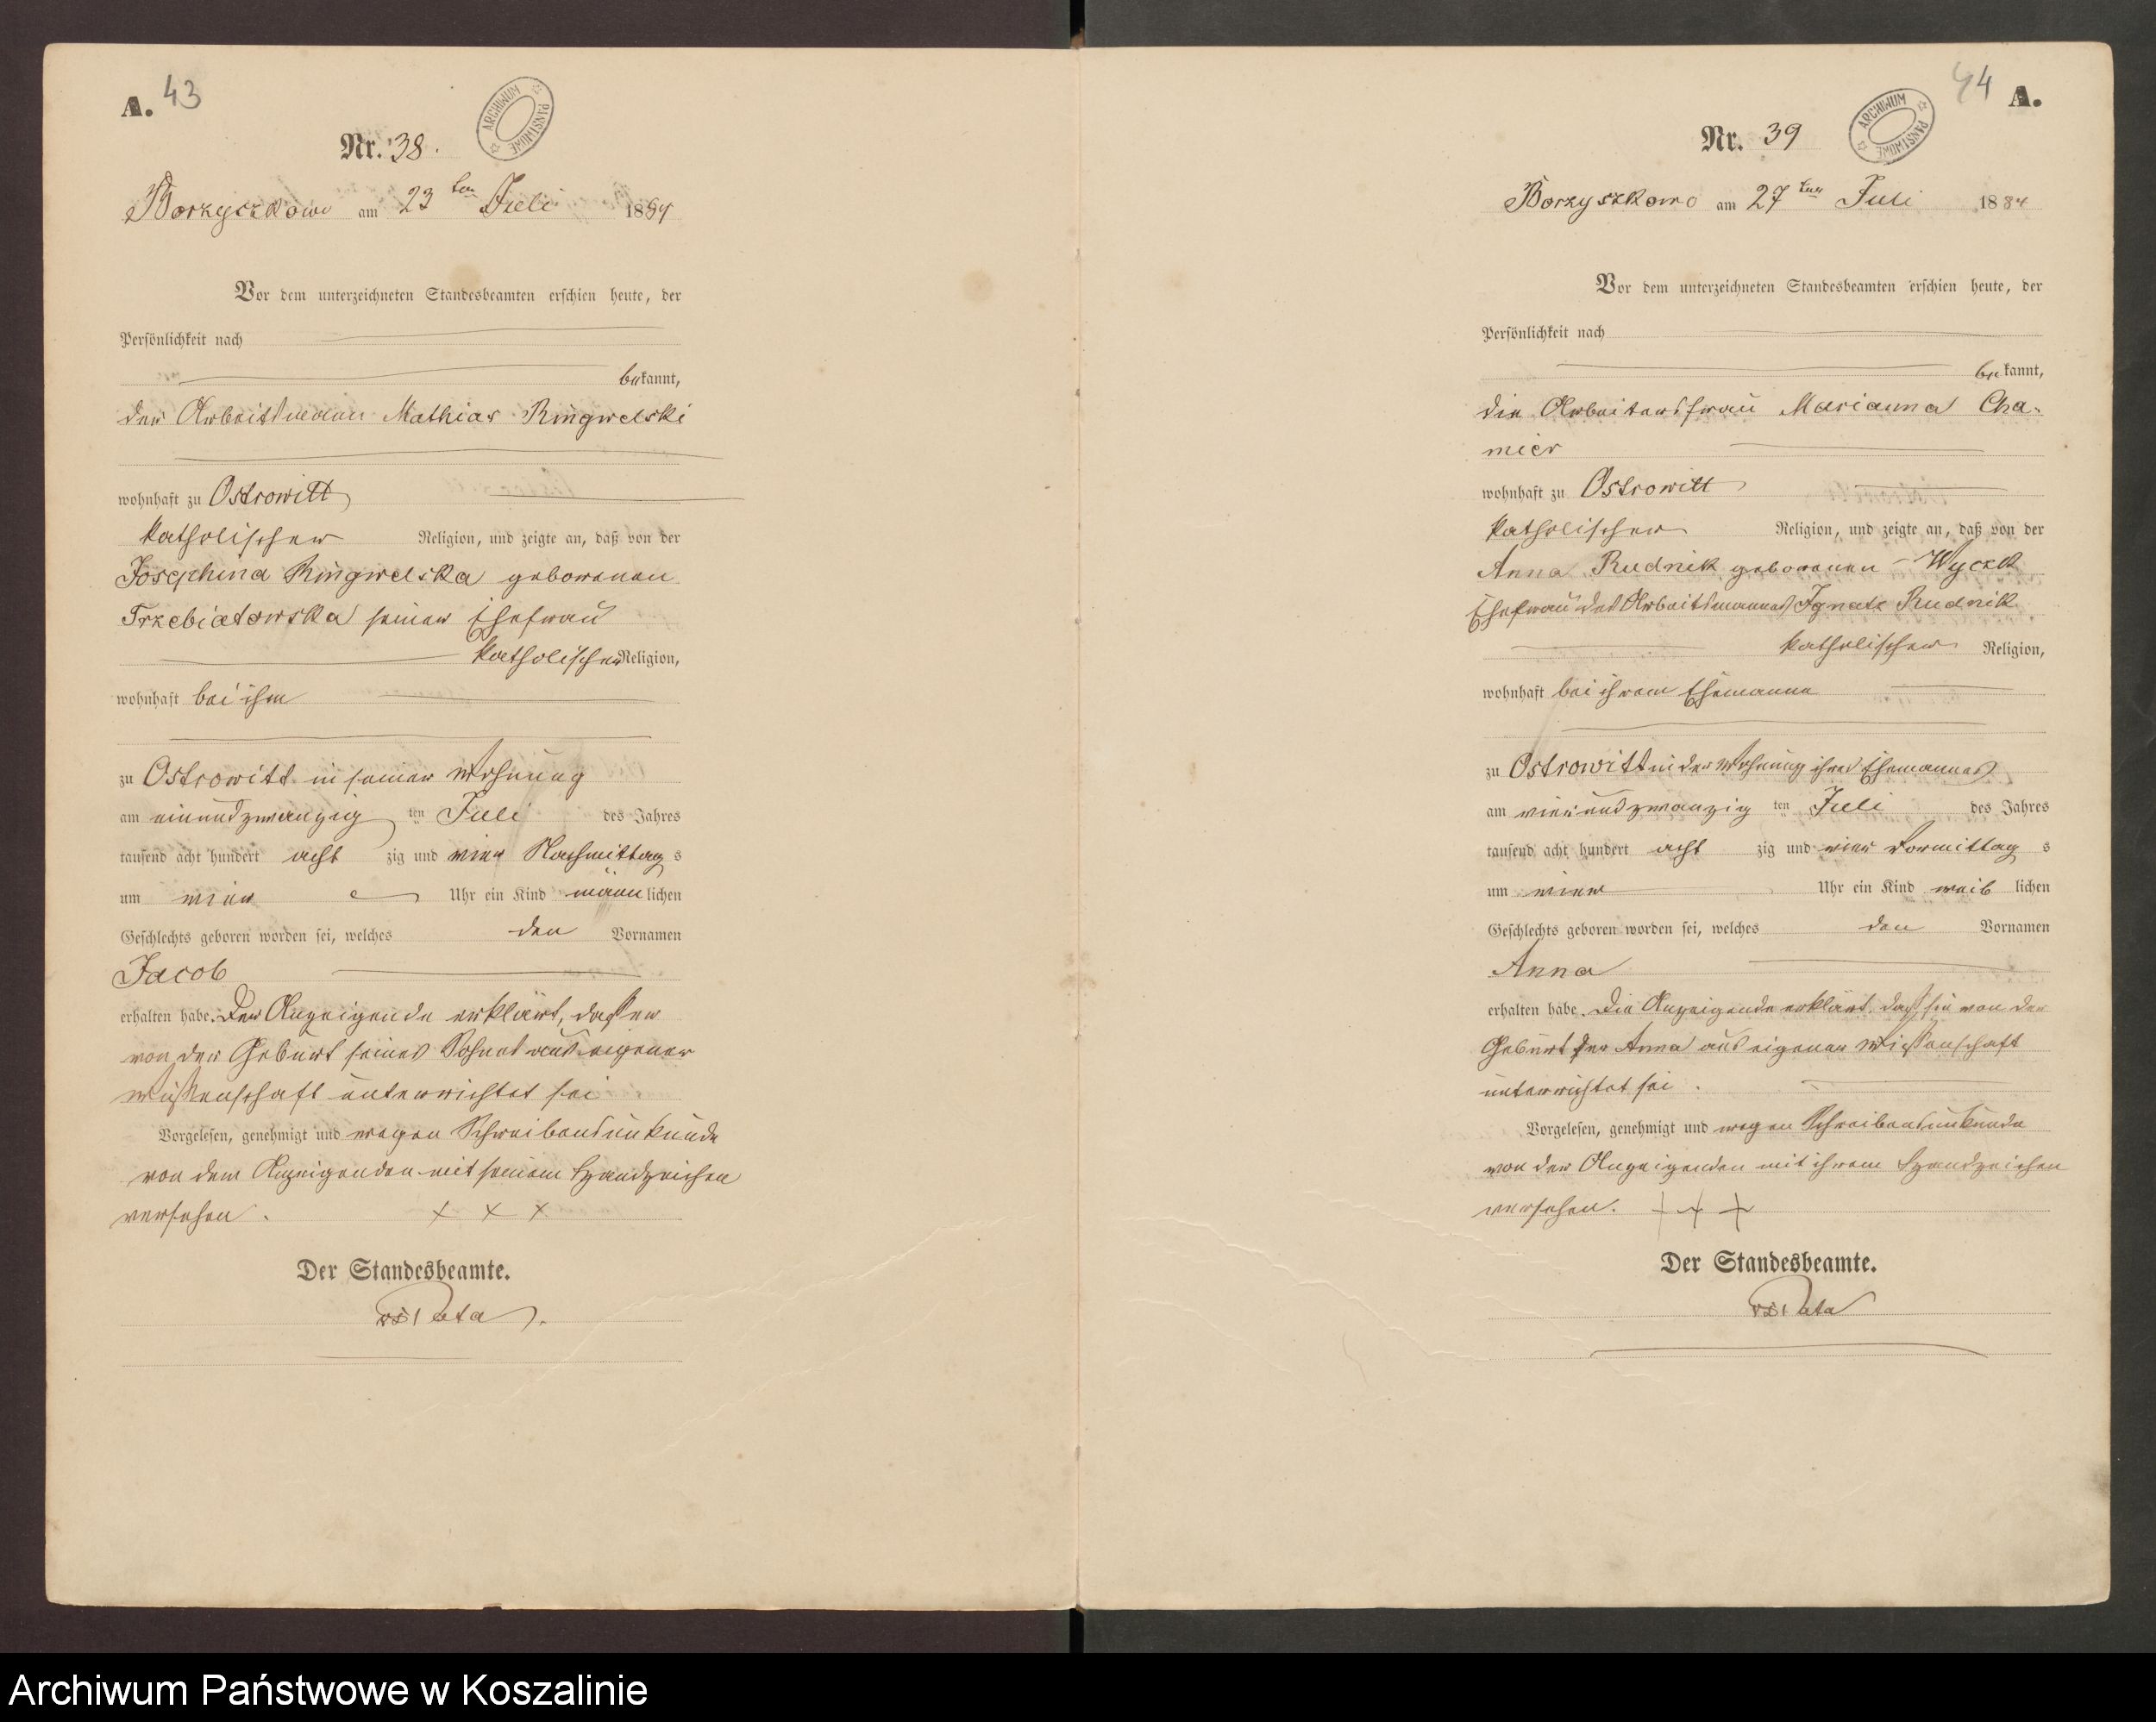 A. 43
ARCHIWUM PAŃSTWOWE
Nr. 38.
Borzyszkowo am 23ten Juli 1884
Vor dem unterzeichneten Standesbeamten erschien heute, der
Persönlichkeit nach
bekannt,
der Arbeitsmann Mathias Ringwelski
wohnhaft zu Ostrowitt
katholischer Religion, und zeigte an, daß von der
Josephina Ringwelska geborenen
Trzebiatowska seiner Ehefrau
katholischer Religion,
wohnhaft bei ihm
zu Ostrowitt in seiner Wohnung
am einundzwanzig ten Juli des Jahres
tausend acht hundert acht zig und vier Nachmittag s
um vier Uhr ein Kind männ lichen
Geschlechts geboren worden sei, welches den Vornamen
Jacob
erhalten habe. Der Anzeigende erklärt, daß er
von der Geburt seines Sohnes aus eigener
Wissenschaft unterrichtet sei
Vorgelesen, genehmigt und wegen Schreibensunkunde
von dem Anzeigenden mit seinem Handzeichen
versehen. × × ×
Der Standesbeamte.
44 A.
ARCHIWUM PAŃSTWOWE
Nr. 39
Borzyszkowo am 27ten Juli 1884
Vor dem unterzeichneten Standesbeamten erschien heute, der
Persönlichkeit nach
bekannt,
die Arbeitersfrau Marianna Cha-
mier
wohnhaft zu Ostrowitt
katholischer Religion, und zeigte an, daß von der
Anna Rudnik geborenen Wyczk
Ehefrau des Arbeitsmannes Ignatz Rudnik
katholischer Religion,
wohnhaft bei ihrem Ehemanne
zu Ostrowitt in der Wohnung ihres Ehemannes
am vierundzwanzig ten Juli des Jahres
tausend acht hundert acht zig und vier Vormittag s
um vier Uhr ein Kind weib lichen
Geschlechts geboren worden sei, welches den Vornamen
Anna
erhalten habe. Die Anzeigende erklärt, daß sie von der
Geburt der Anna aus eigener Wissenschaft
unterrichtet sei.
Vorgelesen, genehmigt und wegen Schreibensunkunde
von der Anzeigenden mit ihrem Handzeichen
versehen. + + +
Der Standesbeamte.
Archiwum Państwowe w Koszalinie